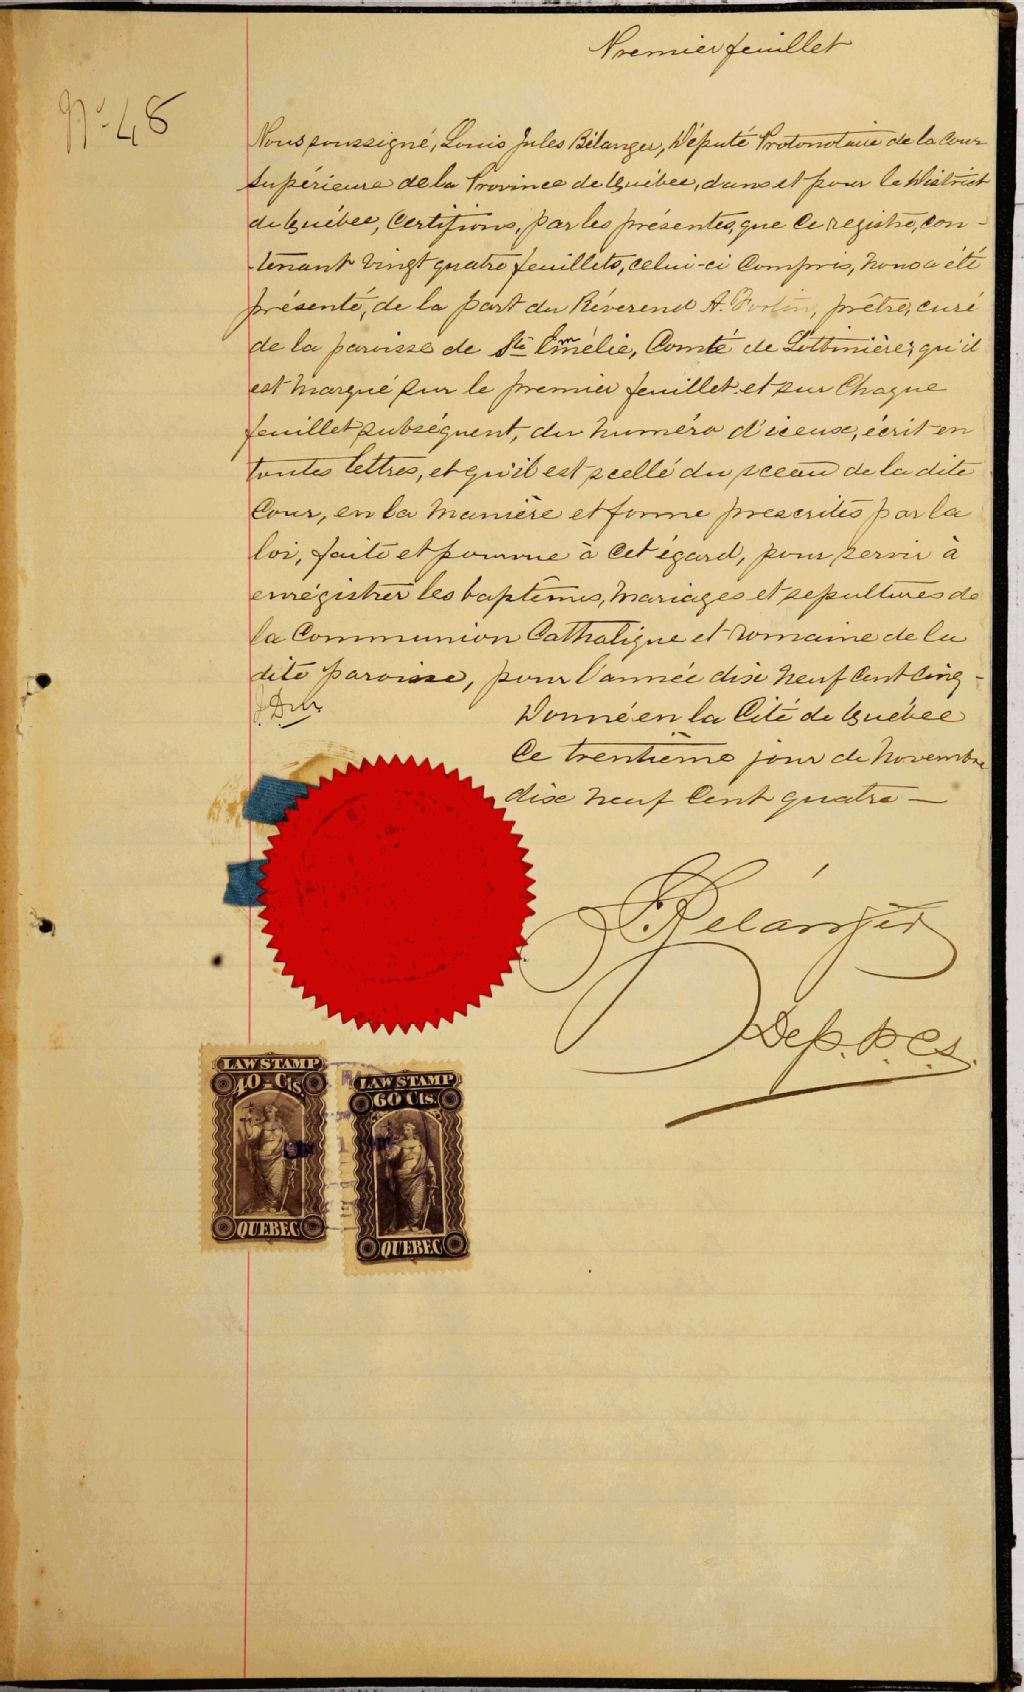 Premier feuillet
No. 48
Nous soussigné, Louis Jules Bélanger, Député Protonotaire de la Cour
Supérieure de la Province de Québec, dans et pour le District
de Québec, Certifions, par les présentes, que Ce registre, con-
-tenant vingt quatre feuillets, celui-ci Compris, nous a été
présenté, de la part du Révérend A. Fortin, prêtre, curé
de la paroisse de Ste Emélie, Comté de Lotbinière; qu'il
est marqué sur le premier feuillet et sur Chaque
feuillet subséquent, du numéro d'iceux, écrit en
toutes lettres, et qu'il est scellé du sceau de la dite
Cour, en la manière et forme prescrites par la
loi, faite et pourvue à Cet égard, pour servir à
enrégistrer les baptêmes, mariages et sepultures de
la Communion Catholique et romaine de la
dite paroisse, pour l'année dix neuf Cent Cinq -
Donné en la Cité de Québec
Ce trentième jour de Novembre
dix neuf Cent quatre —
Bélanger
Dep. P. C. S.
LAW STAMP
40 - Cts.
QUEBEC
LAW STAMP
60 Cts.
QUEBEC